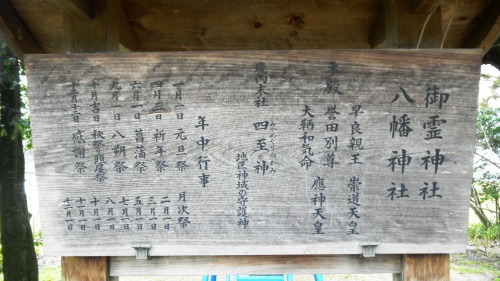 御霊神社
八幡神社
主殿 早良親王 崇道天皇
誉田別尊 應神天皇
大鞆和気命
境内末社 四至神
地区神域の守護神
年中行事
一月一日 元旦祭 月次祭
四月三日 祈年祭 二月一日
六月一日 菖蒲祭 三月一日
九月一日 八朔祭 五月一日
秋祭頭屋祭 七月一日
感謝祭 八月一日
十月一日
十一月一日
十二月一日